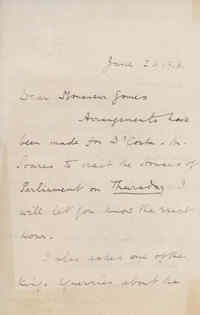 June 20. 1916.
Dear Monsieur Gomes
Arrangements have
been made for Dr Costa & M.
Soares to visit the Houses of
Parliament on Thursday. I
will let you know the exact
hour.
I also asked one of the
King's Equerries about the